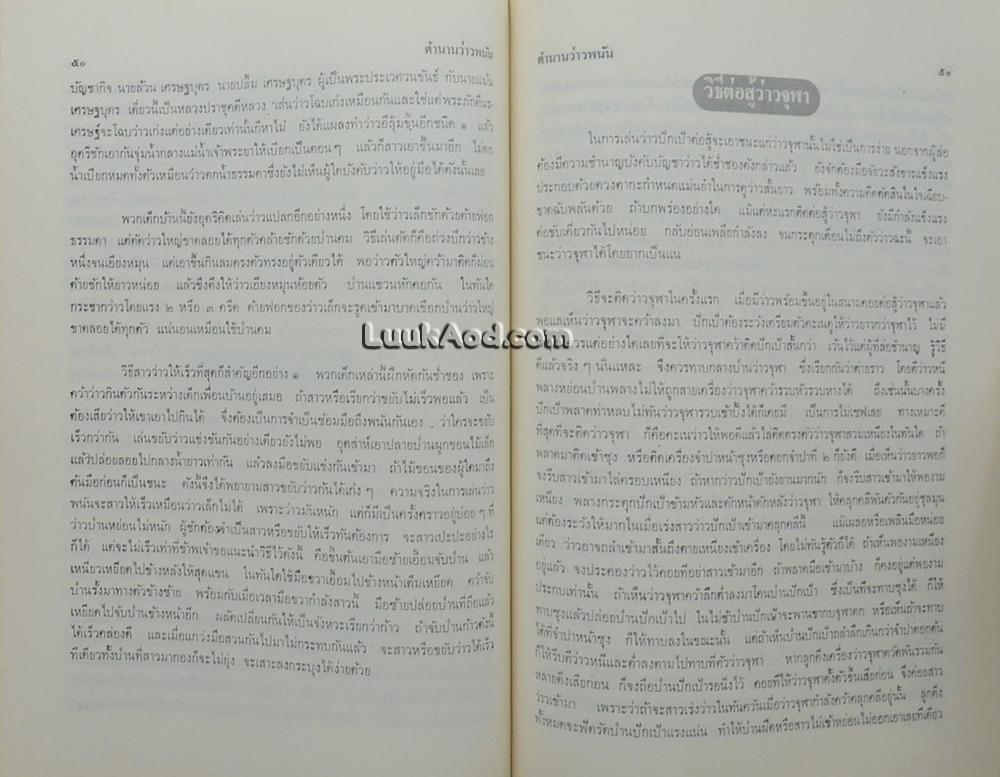 ๕๐
ตำนานว่าวพนัน
บัญชากิจ นายล้วน เศรษฐบุตร นายปลื้ม เศรษฐบุตร ผู้เป็นพระประเวศวนขันธ์ กับนายแม้น
เศรษฐบุตร เดี๋ยวนี้เป็นหลวงปราชุคดีหลวง เล่นว่าวโฉบเก่งเหมือนกันและใช่แต่พระภักดีนร-
เศรษฐ์จะโฉบว่าวเก่งแต่อย่างเดียวเท่านั้นก็หาไม่ ยังได้แผลงทำว่าวอีลุ้มขึ้นอีกชนิด ๑ แล้ว
อุตริชักเอากันจุ่มน้ำกลางแม่น้ำเจ้าพระยาให้เบียกเป็นคอนๆ แล้วก็สาวเอาขึ้นมาอีก ไม่ตก
น้ำเบียกหมดทั้งตัวเหมือนว่าวตกน้ำธรรมดาซึ่งยังไม่เห็นผู้ใดบังคับว่าวให้อยู่มือได้ดังนั้นเลย
พวกเด็กบ้านนี้ยังอุตริคิดเล่นว่าวแปลกอีกอย่างหนึ่ง โดยใช้ว่าวเล็กชักด้วยด้ายฟอก
ธรรมดา แต่ตัดว่าวใหญ่ขาดลอยได้ทุกตัวคล้ายชักด้วยป่านคม วิธีเล่นตัดก็คือถ่วงปีกว่าวข้าง
หนึ่งจนเอียงหมุน แต่เอาขึ้นกินลมตรงตัวทรงอยู่ตัวเดียวได้ พอว่าวตัวใหญ่คว้ามาติดก็ผ่อน
ด้ายชักให้ยาวหน่อย แล้วซึงดึงให้ว่าวเอียงหมุนห้อยตัว ป่านแขวนหักคอกัน ในทันใด
กระชากว่าวโดยแรง ๒ หรือ ๓ ครืด ด้ายฟอกของว่าวเล็กจะรูดเข้ามาบาดเชือกป่านว่าวใหญ่
ขาดลอยได้ทุกตัว แน่นอนเหมือนใช้ป่านคม
วิธีสาวว่าวให้เร็วที่สุดก็สำคัญอีกอย่าง ๑ พวกเด็กเหล่านี้ฝึกหัดกันช่ำชอง เพราะ
คว้าว่าวกินตัวกันระหว่างเด็กเพื่อนบ้านอยู่เสมอ ถ้าสาวหรือเรียกว่าขยับไม่เร็วพอแล้ว เป็น
ต้องเสียว่าวให้เขาเอาไปกินได้ จึ่งต้องเป็นการจำเป็นซ้อมมือถึงพนันกันเอง ว่าใครจะขยับ
เร็วกว่ากัน เล่นขยับว่าวแข่งขันกันอย่างเดียวยังไม่พอ อุตส่าห์เอาปลายป่านผูกขอนไม้เล็ก
แล้วปล่อยลอยไปกลางน้ำยาวเท่ากัน แล้วลงมือขยับแข่งกันเข้ามา ถ้าไม้ขอนของผู้ใดมาถึง
ต้นมือก่อนก็เป็นชนะ ดังนี้จึงได้พยายามสาวขยับว่าวกันได้เก่งๆ ความจริงในการเล่นว่าว
พนันจะสาวให้เร็วเหมือนว่าวเล็กไม่ได้ เพราะว่าวมันหนัก แต่ก็มีเป็นครั้งคราวอยู่บ่อยๆ ที่
ว่าวป่านหย่อนไม่หนัก ผู้ชักต้องจำเป็นสาวหรือขยับให้เร็วทันต้องการ จะสาวเปะปะอย่างไร
ก็ได้ แต่จะไม่เร็วเท่าที่ข้าพเจ้าขอแนะนำวิธีไว้ดังนี้ คือขึ้นต้นเอามือซ้ายเอื้อมจับป่าน แล้ว
เหนี่ยวเหยียดไปข้างหลังให้สุดแขน ในทันใดใช้มือขวาเอื้อมไปข้างหน้าเต็มเหยียด คว้าจับ
ป่านรั้งมาทางตัวข้างซ้าย พร้อมกับเมื่อเวลามือขวากำลังสาวนี้ มือซ้ายปล่อยป่านที่ถือแล้ว
เหยียดไปจับป่านข้างหน้าอีก ผลัดเปลี่ยนกันให้เป็นจังหวะเรียกว่าก้าว ถ้าจับป่านก้าวดังนี้
ได้เร็วคล่องดี และเมื่อแกว่งมือสวนกันไปมาไม่กระทบกันแล้ว จะสาวหรือขยับว่าวได้เร็ว
ทีเดียวทั้งป่านที่สาวมากองก็จะไม่ยุ่ง จะเสาะลงกระบุงได้ง่ายด้วย
ตำนานว่าวพนัน
๕๑
วิธีต่อสู้ว่าวจุฬา
ในการเล่นว่าวปักเป้าต่อสู้จะเอาชนะแก่ว่าวจุฬานั้นไม่ใช่เป็นการง่าย นอกจากผู้ล่อ
ต้องมีความชำนาญบังคับบัญชาว่าวได้ช่ำชองดังกล่าวแล้ว ยังจักต้องมีอวัยวะสังขารแข็งแรง
ประกอบด้วยดวงตากะกำหนดแม่นยำในการดูว่าวสั้นยาว พร้อมทั้งความคิดตัดสินในใจเฉียบ-
ขาดฉับพลันด้วย ถ้าบกพร่องอย่างใด แม้แต่หะแรกติดต่อสู้ว่าวจุฬา ยังมีกำลังแข็งแรง
ต่อขับเคี่ยวกันไปหน่อย กลับอ่อนเพลียกำลังลง จนกระตุกเตือนไม่ถึงตัวว่าวฉะนี้ จะเอา
ชนะว่าวจุฬาได้โดยยากเป็นแน่
วิธีจะติดว่าวจุฬาในครั้งแรก เมื่อมีว่าวพร้อมขึ้นอยู่ในสนามคอยต่อสู้ว่าวจุฬาแล้ว
พอแลเห็นว่าวจุฬาจะคว้าลงมา ปักเป้าต้องระวังเตรียมตัวคะเนดูให้ว่าวยาวกว่าจุฬาไว้ ไม่มี
ควรแต่อย่างใดเลยที่จะให้ว่าวจุฬาคว้าติดปักเป้าสั้นกว่า เว้นไว้แต่ผู้ที่ล่อชำนาญ รู้วิธี
ดีแล้วจริงๆ นั่นแหละ จึงควรทาบกลางป่านว่าวจุฬา ซึ่งเรียกกันว่าต่ายราว โดยตีว่าวหนี
พลางหย่อนป่านพลางไม่ให้ถูกสายเครื่องว่าวจุฬาคว้ารวบหัวรวบหางได้ ถึงเช่นนั้นบางครั้ง
ปักเป้าพลาดท่าหลบไม่ทันว่าวจุฬารวบเข้าปิ้งได้ก็โดยมี เป็นการไม่เซฟเลย ทางเหมาะดี
ที่สุดที่จะติดว่าวจุฬา ก็คือคะเนว่าวให้พอดีแล้วใส่ติดตรงตัวว่าวจุฬาสวมเหนียงในทันใด ถ้า
พลาดมาติดเข้าซุง หรือติดเครื่องจำปาหน้าซุงหรือดอกจำปาที่ ๒ ก็ยังดี เมื่อเห็นว่าวยาวพอก็
จงรีบสาวเข้ามาใส่ครอบเหนียง ถ้าหากว่าวปักเป้ายังยานมากนัก ก็จงรีบสาวเข้ามาให้พองาม
เหนียง พลางกระตุกปักเป้าข้ามหัวและตักหน้าตักหลังว่าวจุฬา ให้คลุกคลีพันตัวกันอยู่ชุลมุน
แต่ต้องระวังให้มากในเมื่อเร่งสาวว่าวปักเป้าเข้ามาคลุกคลีนี้ แม้เผลอหรือเพลินมือหน่อย
เดียว ว่าวอาจถลำเข้ามาสั้นถึงคายเหนียงเข้าเครื่อง โดยไม่ทันรู้ตัวก็ได้ ถ้าเห็นพองามเหนียง
อยู่แล้ว จงประคองว่าวไว้คอยที่อย่าสาวเข้ามาอีก ถ้าพลาดมือเข้ามาบ้าง ก็คงอยู่แต่พองาม
ประกอบเท่านั้น ถ้าเห็นว่าวจุฬาคว้าลึกต่ำลงมาโคนป่านปักเป้า ซึ่งเป็นที่จะทาบซุงได้ ก็ให้
ทาบซุงแล้วปล่อยป่านปักเป้าไป ในไม่ช้าป่านปักเป้าจะพานขากบจุฬาตก หรือเห็นถ้าจะทาบ
ได้ที่จำปาหน้าซุง ก็ให้ทาบลงในขณะนั้น แต่ถ้าเห็นป่านปักเป้าถลำลึกเกินกว่าจำปาดอกต้น
ก็ให้รีบตีว่าวหนีและต่ำลงตามไปทาบที่ตัวว่าวจุฬา หากลูกดึงเครื่องว่าวจุฬาตวัดพันร่วมกัน
หลายดึงเสียก่อน ก็จงถือป่านปักเป้ารอนิ่งไว้ คอยที่ให้ว่าวจุฬาตั้งตัวขึ้นเสียก่อน จึงค่อยสาว
ว่าวเข้ามา เพราะว่าถ้าจะสาวเร่งว่าวในทันควันเมื่อว่าวจุฬากำลังคว้าคลุกคลีอยู่นั้น ลูกดึง
ทั้งหมดจะฟัดรัดป่านปักเป้าแรงแน่น ทำให้ป่านฝืดหรือสาวไม่เข้าหย่อนไม่ออกเอาเลยทีเดียว
LuukAod.com